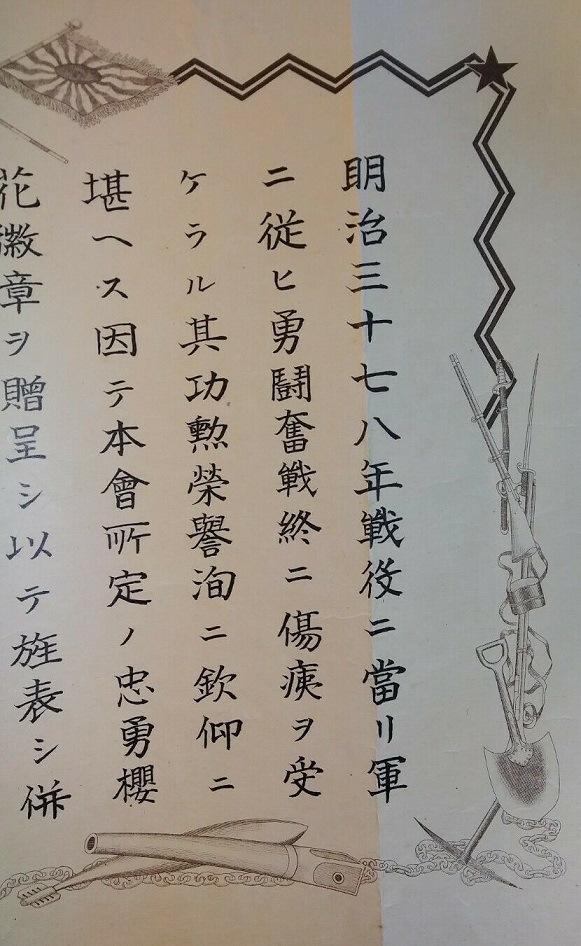 明治三十七八年戦役ニ當リ軍
ニ従ヒ勇鬪奮戦終ニ傷痍ヲ受
ケラル其功勲榮譽洵ニ欽仰ニ
堪ヘス因テ本會所定ノ忠勇櫻
花徽章ヲ贈呈シ以テ旌表シ併